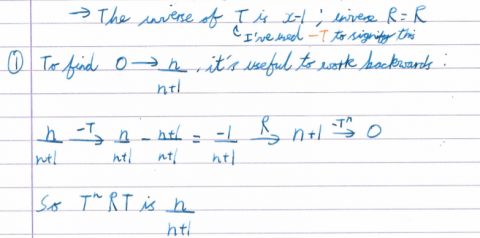 → The inverse of T is x-1 ; inverse R = R
I've used -T to signify this
① To find 0 → n/n+1, it's useful to work backwards :
n/n+1 -T→ n/n+1 - n+1/n+1 = -1/n+1 R→ n+1 -Tⁿ→ 0
So Tⁿ R T is n/n+1